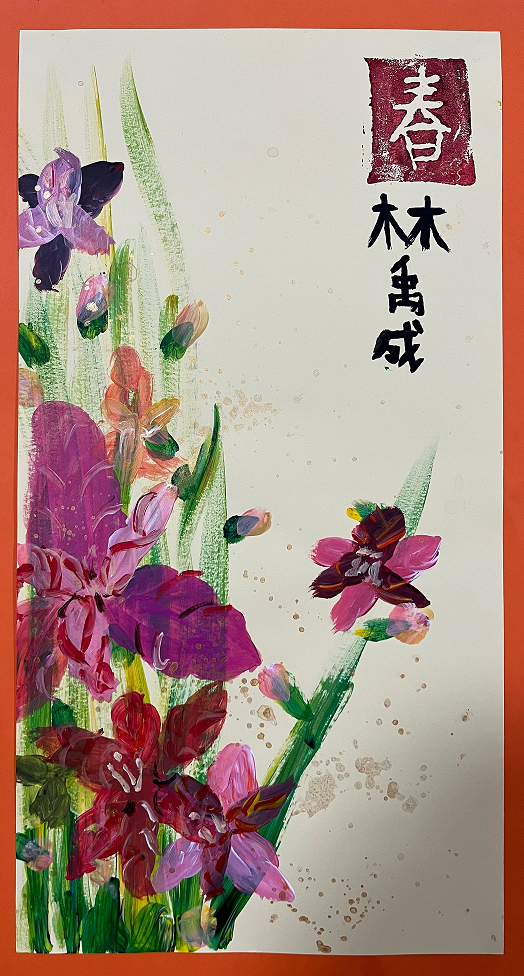 春
林
禹
成